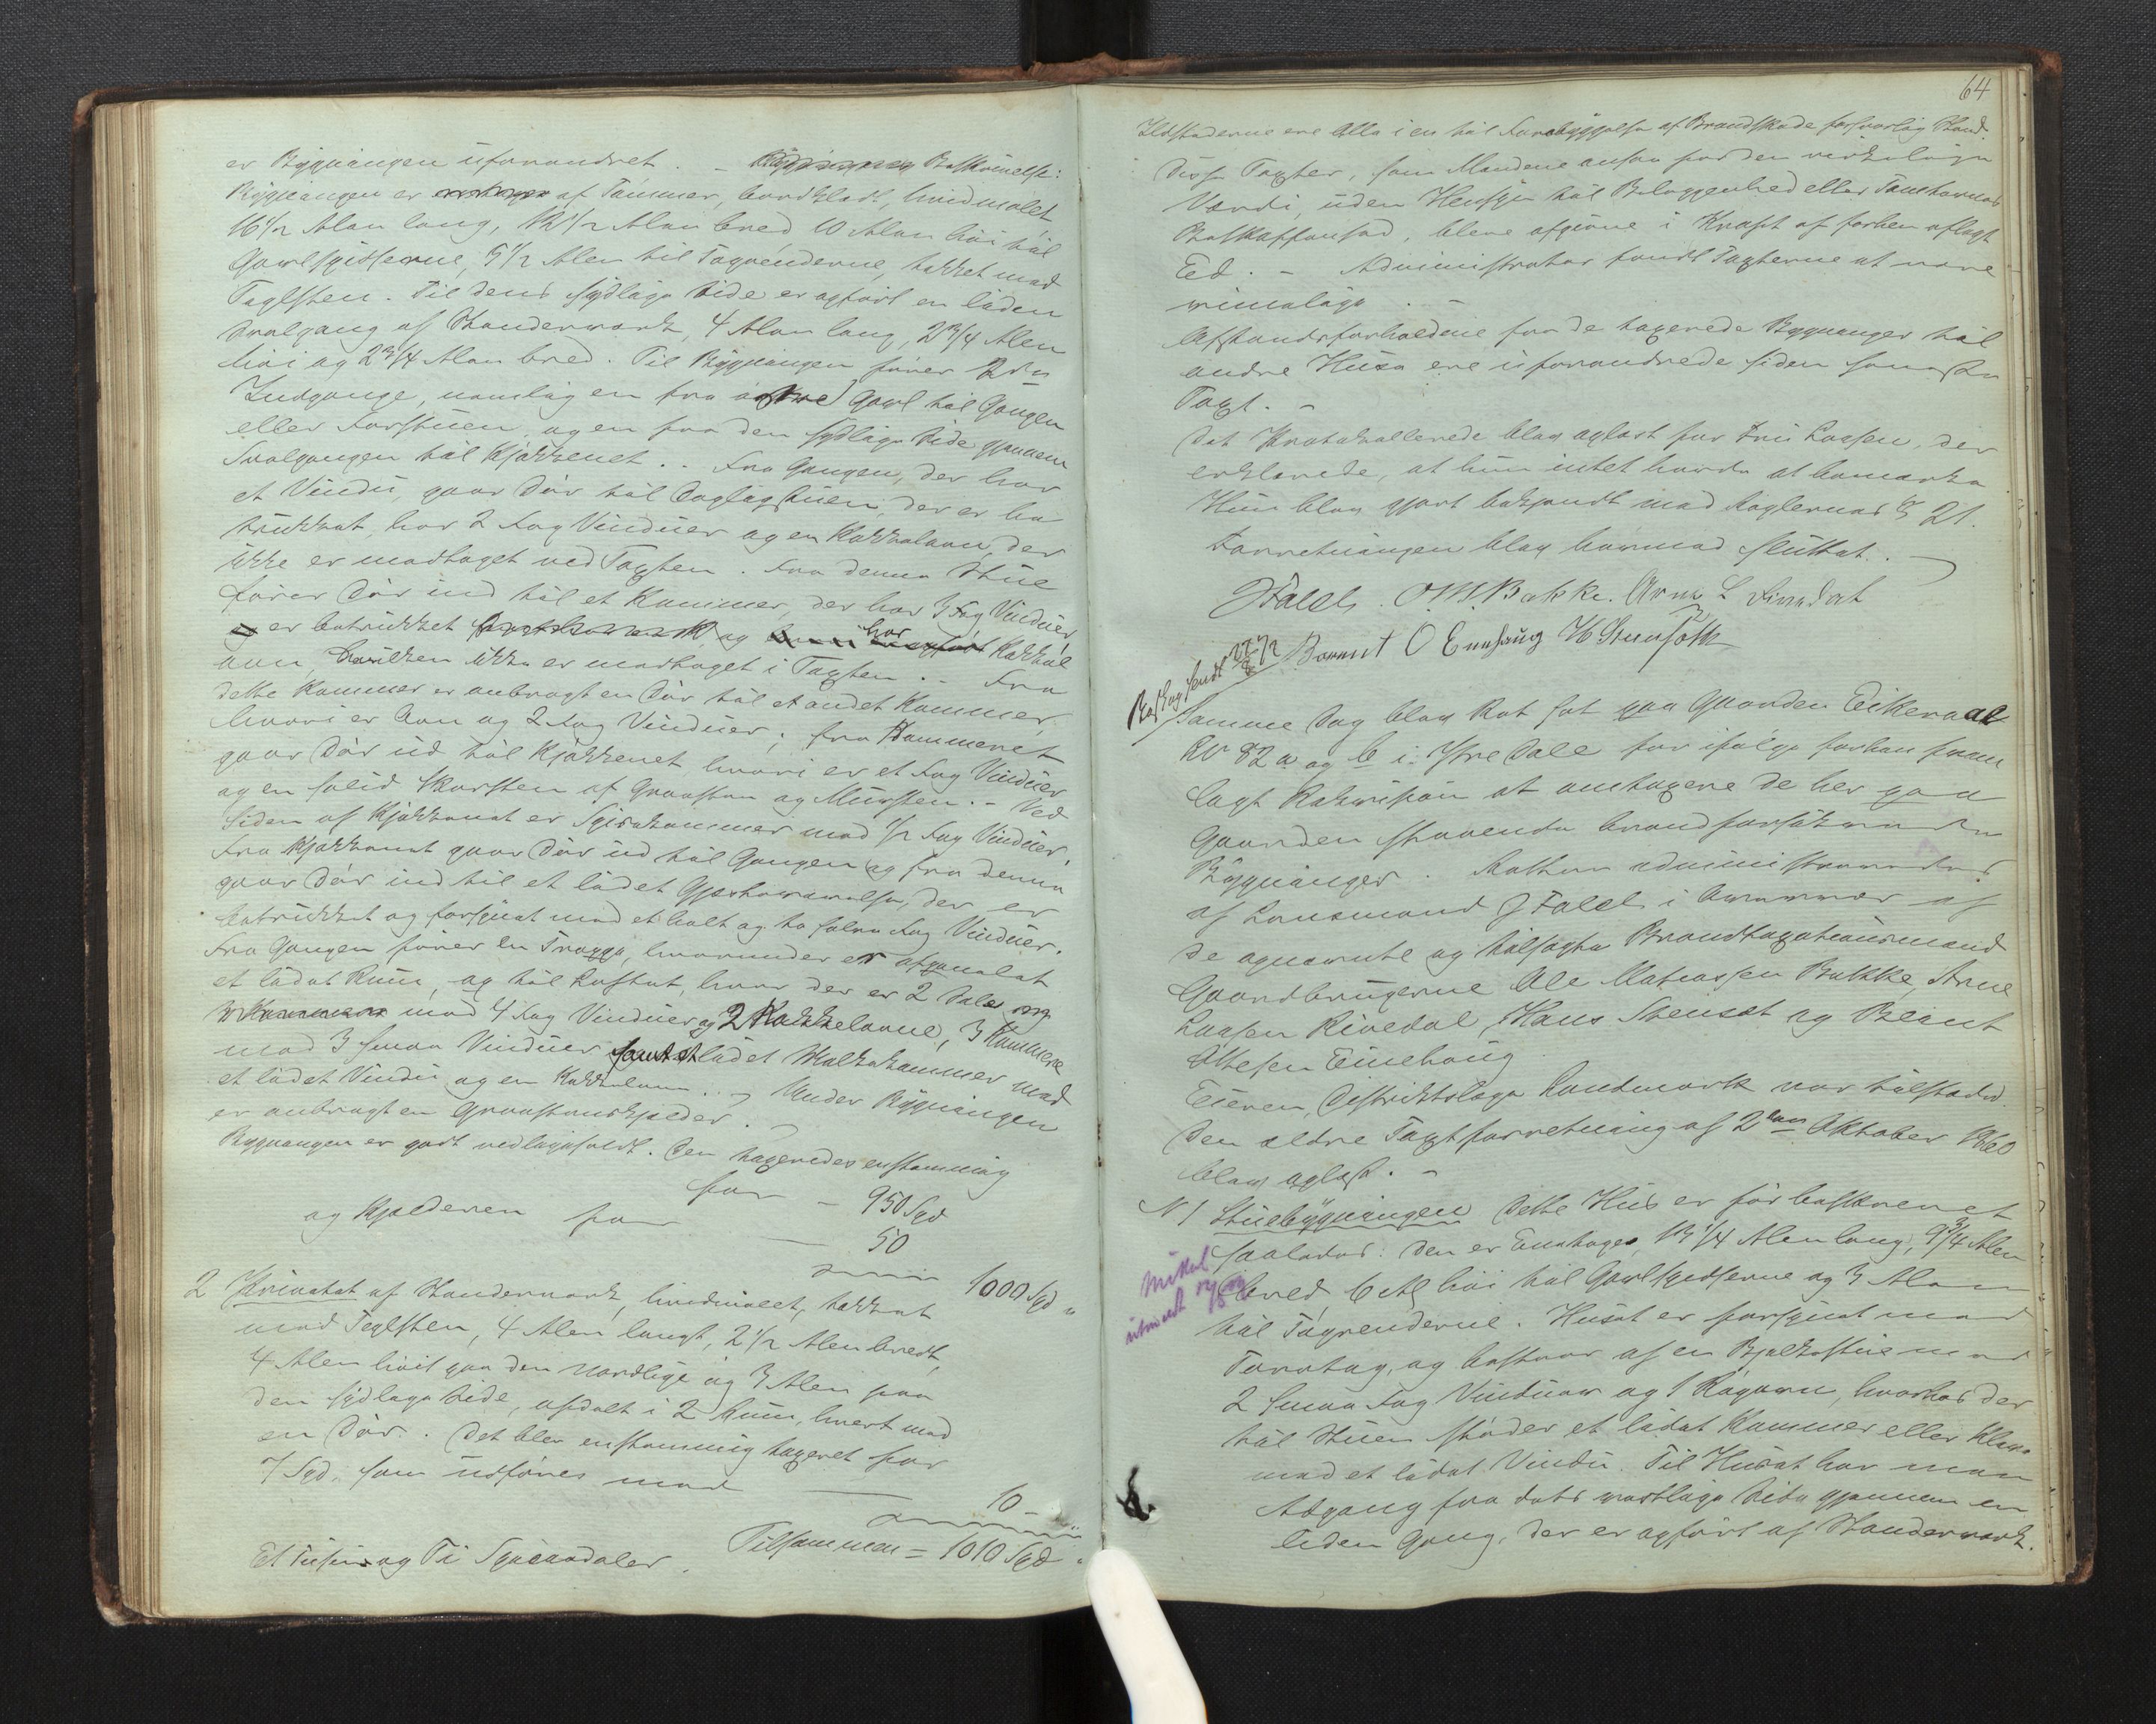 er Bÿgningen ŭforandret. – Beskrivelse:
Bÿgningen er af Tømmer, bordklædt, hvidmalet
16 1/2 Alen lang, 12 1/2 Alen bred 10 Alen høi til
Gavlspidserne, 5 1/2 Alen til Tagrenderne, tækket med
Taglsten. Til dens sÿdlige Side er opført en liden
Svalgang af Standerværk, 4 Alen lang, 2 3/4 Alen
høi og 2 3/4 Alen bred. Til Bÿgningen fører 2de
Indgange, nemlig en fra østre Gavl til Gangen
eller Forstŭen, og en fra den sÿdlige Side gjennem
Svalgangen til Kjøkkenet. . Fra Gangen, der har
et Vindŭ, gaar Dør til Dagligstŭen, der er be
trŭkket, har 2 Fag Vindŭer og en Kakkelovn, der
ikke er medtaget ved Taxten. Fra denne Stŭe
fører Dør ind til et Kammer, der har 3 Fag Vindŭer,
er betrŭkket og har Kakkel
ovn, hvilken ikke er medtaget i Taxten. – Fra
dette Kammer er anbragt en Dør til et andet Kammer,
hvori er Ovn og 2 Fag Vindŭer; fra Kammeret
gaar Dør ŭd til Kjøkkenet, hvori er et Fag Vindŭer
og en solid Skorsten af Graasten og Mŭrsten. – Ved
Siden af Kjøkkenet er Spisekammer med 1/2 Fag Vindŭer.
Fra Kjøkkenet gaar Dør ŭd til Gangen og fra denne
gaar Dør ind til et lidet Gjesteværelse, der er
betrŭkket og forsÿnet med et helt og to halve Fag Vindŭer.
Fra Gangen fører en Trappe, hvorunder er afpanelet
et lidet Rŭm, op til Loftet, hvor der er 2 Sale
med 4 Fag Vindŭer og 2 Kakkelovne, 3 Kammere
med 3 smaa Vindŭer samt et lidet Kammer med
et lidet Vindŭ og en Kakkelovn. Under Bÿgningen
er anbragt en Graastenskjelder.
Bygningen er godt vedligeholdt. Den taxeredes enstemmig
for – 950 Spd
og Kjelderen for — 50
1000 Spd „
2 Privatet af Standerværk, hvidmalet, tækket
med Teglsten, 4 Alen langt, 2 1/2 Alen bredt,
4 Alen høit paa den nordlige og 3 Alen paa
den sÿdlige Side, afdelt i 2 Rŭm, hvert med
en Dør. Det blev enstemmig taxeret for
7 Spd. som ŭdføres med — 10 –
Tilsammen = 1010 Spd „
Et Tŭsind og Ti Speciedaler.
64
Ildstederne ere alle i en til Forebÿggelse af Brandskade forsvarlig Stand.
Disse Taxter, som Mændene ansaa for den virkelige
Værdi, ŭden Hensÿn til Beliggenhed eller Tomternes
Beskaffenhed, bleve afgivne i Kraft af forhen aflagt
Ed. – Administrator fandt Taxterne at være
rimelige. –
Afstandsforholdene fra de taxerede Bygninger til
andre Hŭse ere ŭforandrede siden seneste
Taxt. –
Det Protokollerede blev oplæst for Frŭ Laasen, der
erklærede, at hŭn intet havde at bemærke
Hŭn blev gjort bekjendt med Reglernes § 21.
Forretningen blev hermed slŭttet. —
JFaleb. O. M. Bakke. Arne L Rivedal
Berent O Einehaug H Stensæth
Beskr. sendt 27/8 72
Samme Dag blev Ret sat paa Gaarden Eikenaal
No 82 a og b i Ytre Dale for ifølge forhen frem
lagt Rekvisition at omtaxere de her paa
Gaarden staaende brandforsikrede
Bÿgninger. Retten administreredes
af Lensmand J Faleb i Overvær af
de opnævnte og tilsagte Brandtaxationsmænd
Gaardbrŭgerne Ole Mathiassen Bakke, Arne
Laasen Rivedal, Hans Stensæt og Beint
Ottesen Einehaŭg
Eieren, Distriktslæge Landmark var tilstede.
Den ældre Taxtforretning af 2den Oktober 1860
blev oplæst. –
N 1 Stŭebÿgningen Dette Hŭs er før beskrevet
saaledes: Den er Eenetages, 13 1/4 Alen lang, 9 3/4 Alen
bred 6 Al høi til Gavlspidserne og 3 Alen
til Tagrenderne. Hŭset er forsÿnet med
Torvtag, og bestaar af en Bjelkestŭe med
2 smaa Fag Vindŭer og 1 Røgovn, hvorhos der
til Stŭen støder et lidet Kammer eller Kleve
med et lidet Vindŭ. Til Hŭset har man
Adgang fra dets vestlige Side gjennem en
liden Gang, der er opført af Standerværk.